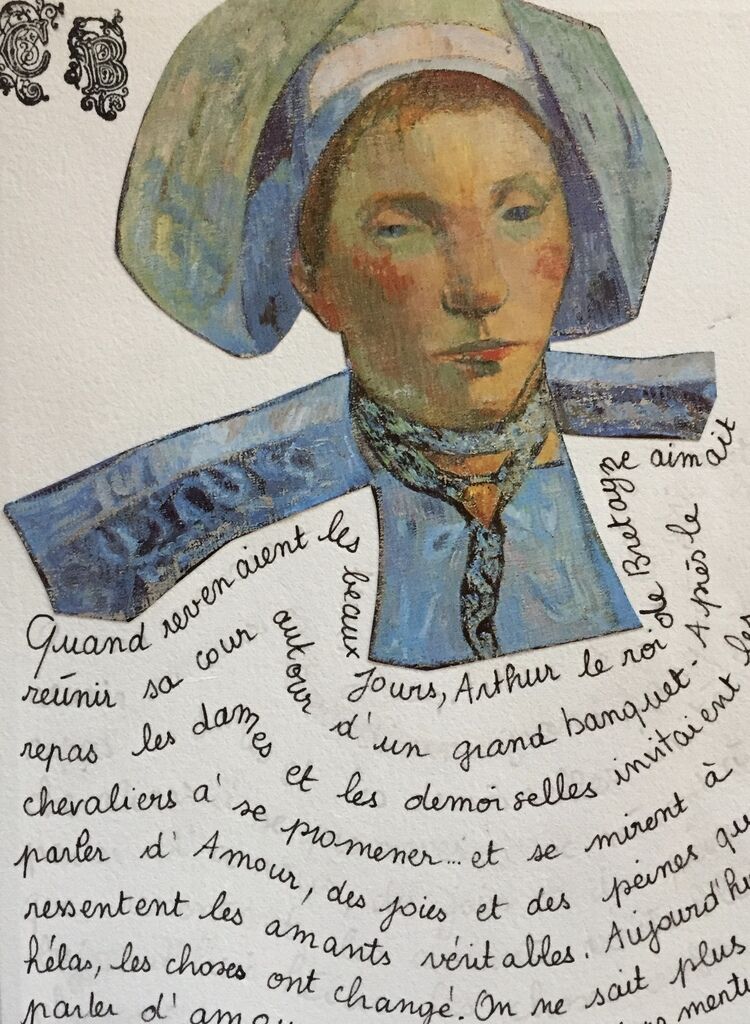 C B
Quand revenaient les beaux Jours, Arthur le roi de Bretagne aimait
réunir sa cour autour d'un grand banquet. Après le
repas les dames et les demoiselles invitaient les
chevaliers à se promener... et se mirent à
parler d'Amour, des joies et des peines qu
ressentent les amants véritables. Aujourd'hu
hélas, les choses ont changé. On ne sait plus
parler d'amou